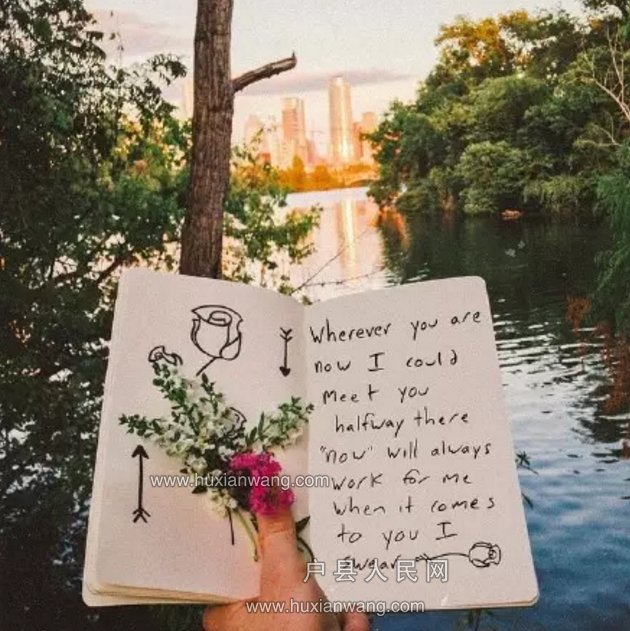 Wherever you are
now I could
meet you
halfway there
"now" will always
work for me
when it comes
to you I
swear
www.huxianwang.com
户县人民网
www.huxianwang.com